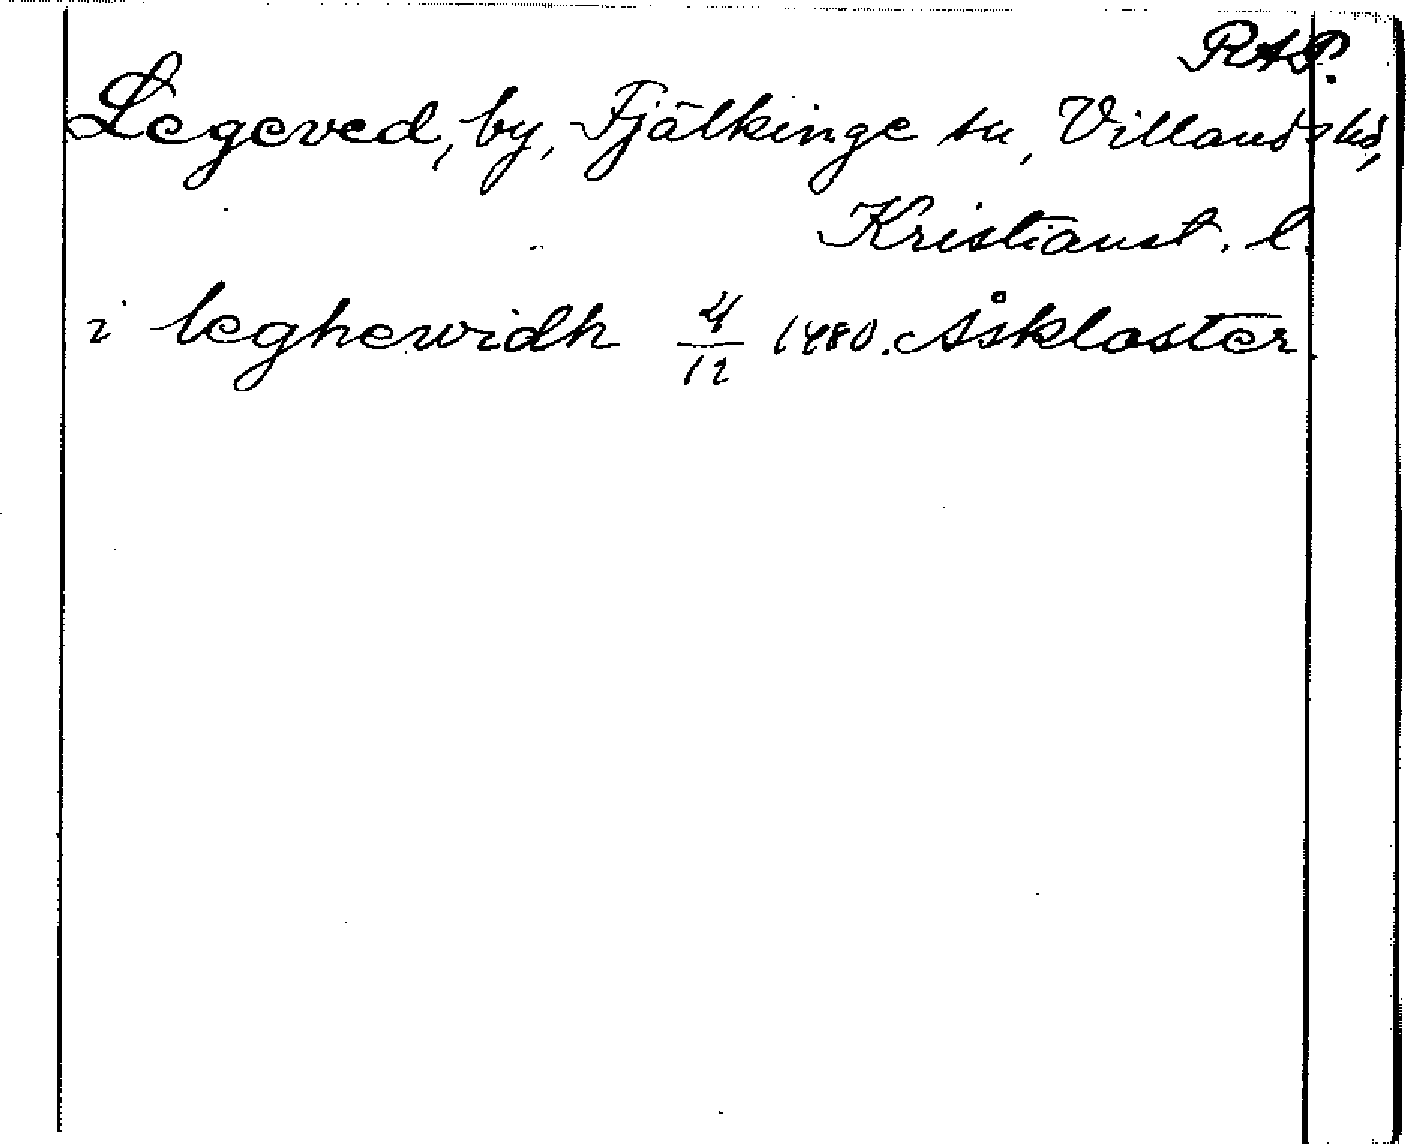 RAP.
Legeved, by, Fjälkinge sn, Villands hd,
Kristianst. l.
i leghewidh 4/12 1480. Åskloster